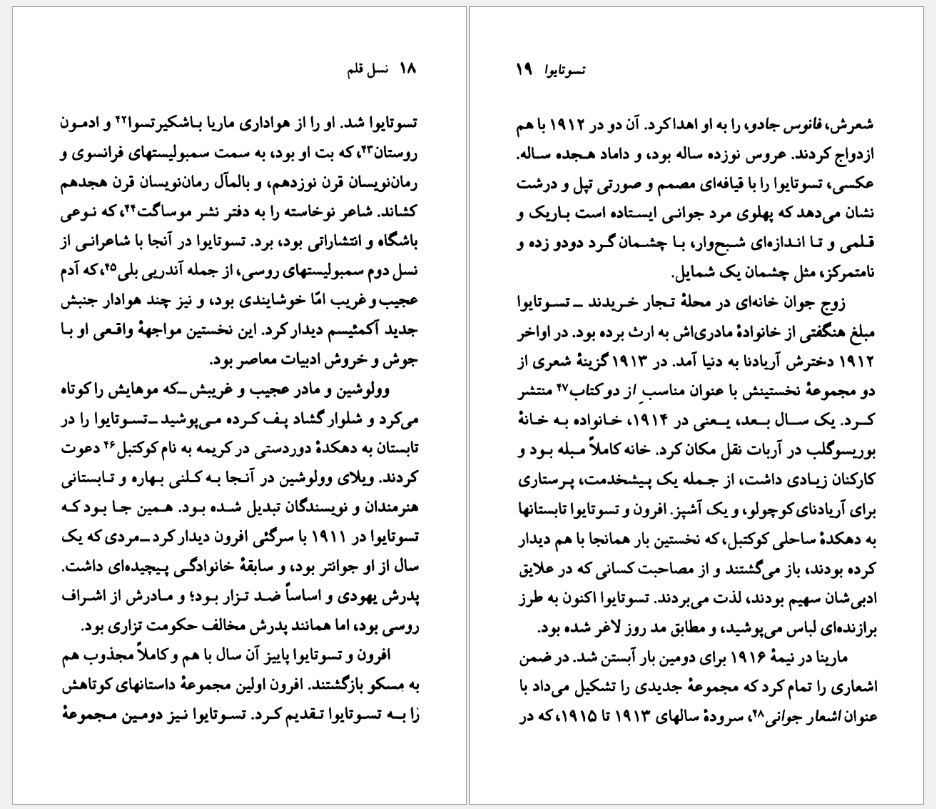 ۱۸ نسل قلم
تسوتایوا شد. او را از هواداری ماریا باشکیرتسوا۴۲ و ادمون
روستان۴۳، که بت او بود، به سمت سمبولیستهای فرانسوی و
رمان‌نویسان قرن نوزدهم، و بالمآل رمان‌نویسان قرن هجدهم
کشاند. شاعر نوخاسته را به دفتر نشر موساگت۴۴، که نوعی
باشگاه و انتشاراتی بود، برد. تسوتایوا در آنجا با شاعرانی از
نسل دوم سمبولیستهای روسی، از جمله آندریی بلی۴۵، که آدم
عجیب و غریب امّا خوشایندی بود، و نیز چند هوادار جنبش
جدید آکمئیسم دیدار کرد. این نخستین مواجههٔ واقعی او با
جوش و خروش ادبیات معاصر بود.
وولوشین و مادر عجیب و غریبش ــ که موهایش را کوتاه
می‌کرد و شلوار گشاد پف کرده می‌پوشید ــ تسوتایوا را در
تابستان به دهکدهٔ دوردستی در کریمه به نام کوکتبل۴۶ دعوت
کردند. ویلای وولوشین در آنجا به کلنی بهاره و تابستانی
هنرمندان و نویسندگان تبدیل شده بود. همین جا بود که
تسوتایوا در ۱۹۱۱ با سرگئی افرون دیدار کرد ــ مردی که یک
سال از او جوانتر بود، و سابقهٔ خانوادگی پیچیده‌ای داشت.
پدرش یهودی و اساساً ضد تزار بود؛ و مادرش از اشراف
روسی بود، اما همانند پدرش مخالف حکومت تزاری بود.
افرون و تسوتایوا پاییز آن سال با هم و کاملاً مجذوب هم
به مسکو بازگشتند. افرون اولین مجموعهٔ داستانهای کوتاهش
را به تسوتایوا تقدیم کرد. تسوتایوا نیز دومین مجموعهٔ
تسوتایوا ۱۹
شعرش، فانوس جادو، را به او اهدا کرد. آن دو در ۱۹۱۲ با هم
ازدواج کردند. عروس نوزده ساله بود، و داماد هجده ساله.
عکسی، تسوتایوا را با قیافه‌ای مصمم و صورتی تپل و درشت
نشان می‌دهد که پهلوی مرد جوانی ایستاده است باریک و
قلمی و تا اندازه‌ای شبح‌وار، با چشمان گرد دودو زده و
نامتمرکز، مثل چشمان یک شمایل.
زوج جوان خانه‌ای در محلهٔ تجار خریدند ــ تسوتایوا
مبلغ هنگفتی از خانوادهٔ مادری‌اش به ارث برده بود. در اواخر
۱۹۱۲ دخترش آریادنا به دنیا آمد. در ۱۹۱۳ گزینهٔ شعری از
دو مجموعهٔ نخستینش با عنوان مناسبِ از دو کتاب۴۷ منتشر
کرد. یک سال بعد، یعنی در ۱۹۱۴، خانواده به خانهٔ
بوریسوگلب در آربات نقل مکان کرد. خانه کاملاً مبله بود و
کارکنان زیادی داشت، از جمله یک پیشخدمت، پرستاری
برای آریادنای کوچولو، و یک آشپز. افرون و تسوتایوا تابستانها
به دهکدهٔ ساحلی کوکتبل، که نخستین بار همانجا با هم دیدار
کرده بودند، باز می‌گشتند و از مصاحبت کسانی که در علایق
ادبی‌شان سهیم بودند، لذت می‌بردند. تسوتایوا اکنون به طرز
برازنده‌ای لباس می‌پوشید، و مطابق مد روز لاغر شده بود.
مارینا در نیمهٔ ۱۹۱۶ برای دومین بار آبستن شد. در ضمن
اشعاری را تمام کرد که مجموعهٔ جدیدی را تشکیل می‌داد با
عنوان اشعار جوانی۴۸، سرودهٔ سالهای ۱۹۱۳ تا ۱۹۱۵، که در